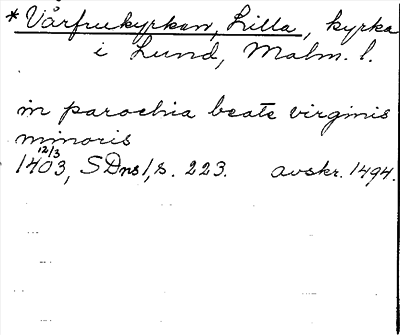 * Vårfrukyrkan, Lilla, kyrka
i Lund, Malm. l.
in parochia beate virginis
minoris
12/3
1403, SDns 1, s. 223. avskr. 1494.